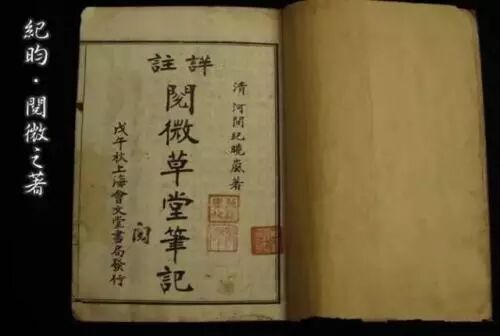 紀昀·閱微之著
清 河間紀曉嵐著
詳註
閱微草堂筆記
戊午秋上海會文堂書局發行